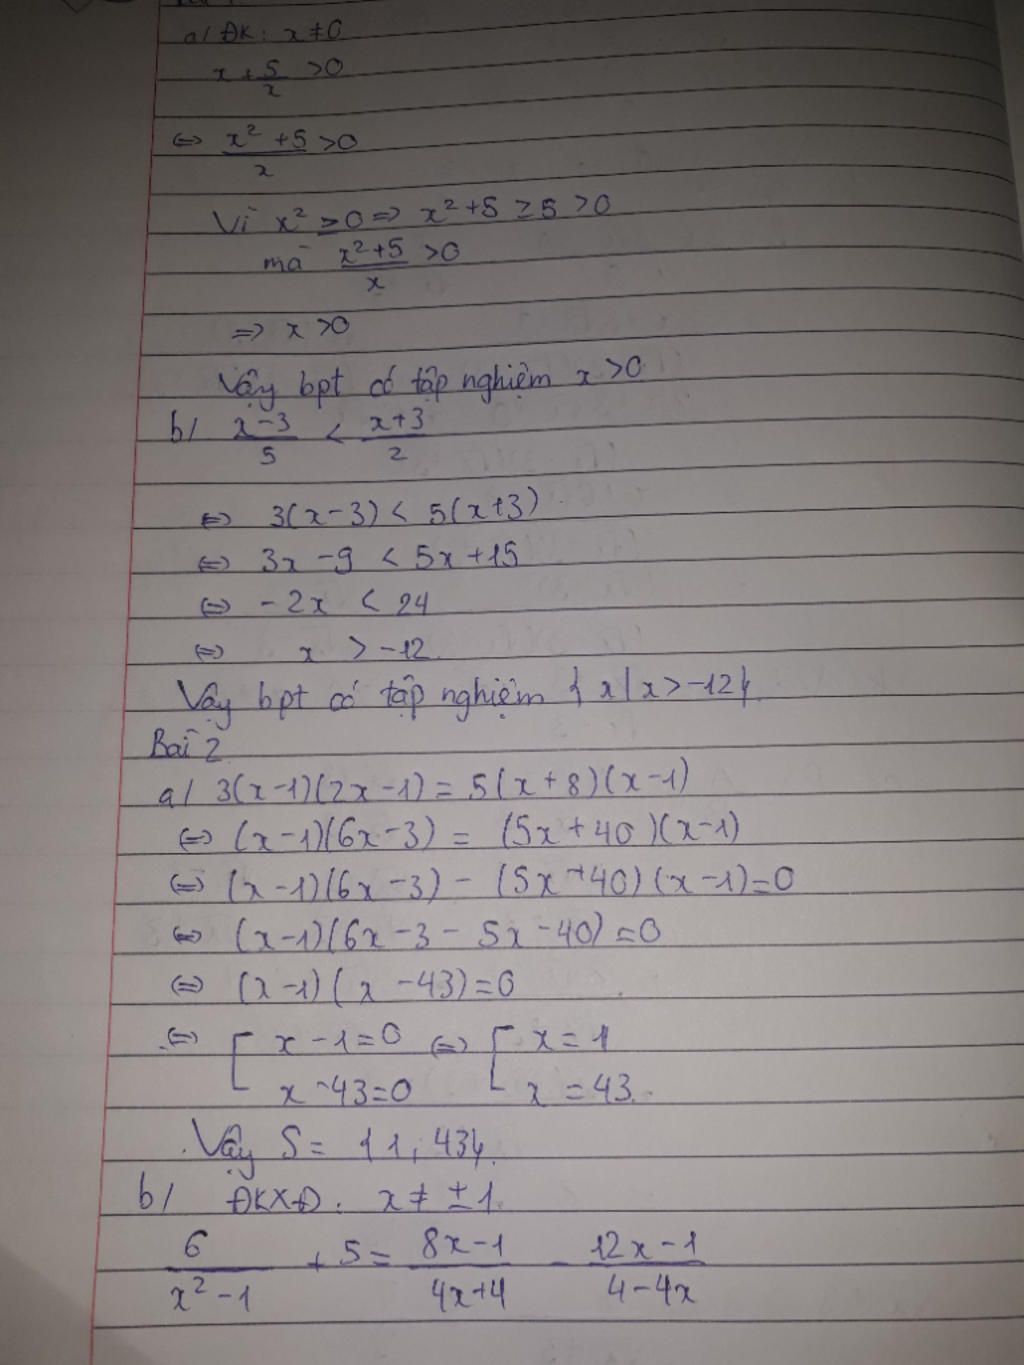 a/ ĐK: x ≠ 0
x + 5/x > 0
⇔ (x² + 5)/x > 0
Vì x² ≥ 0 ⇒ x² + 5 ≥ 5 > 0
mà (x² + 5)/x > 0
⇒ x > 0
Vậy bpt có tập nghiệm x > 0
b/ (x - 3)/5 < (x + 3)/2
⇔ 3(x - 3) < 5(x + 3)
⇔ 3x - 9 < 5x + 15
⇔ - 2x < 24
⇔ x > -12
Vậy bpt có tập nghiệm {x | x > -12}
Bài 2
a/ 3(x - 1)(2x - 1) = 5(x + 8)(x - 1)
⇔ (x - 1)(6x - 3) = (5x + 40)(x - 1)
⇔ (x - 1)(6x - 3) - (5x + 40)(x - 1) = 0
⇔ (x - 1)(6x - 3 - 5x - 40) = 0
⇔ (x - 1)(x - 43) = 0
⇔ [ x - 1 = 0 ⇔ [ x = 1
x - 43 = 0 x = 43.
Vậy S = {1, 43}.
b/ ĐKXĐ: x ≠ ± 1.
6/(x² - 1) + 5 = (8x - 1)/(4x + 4) - (12x - 1)/(4 - 4x)